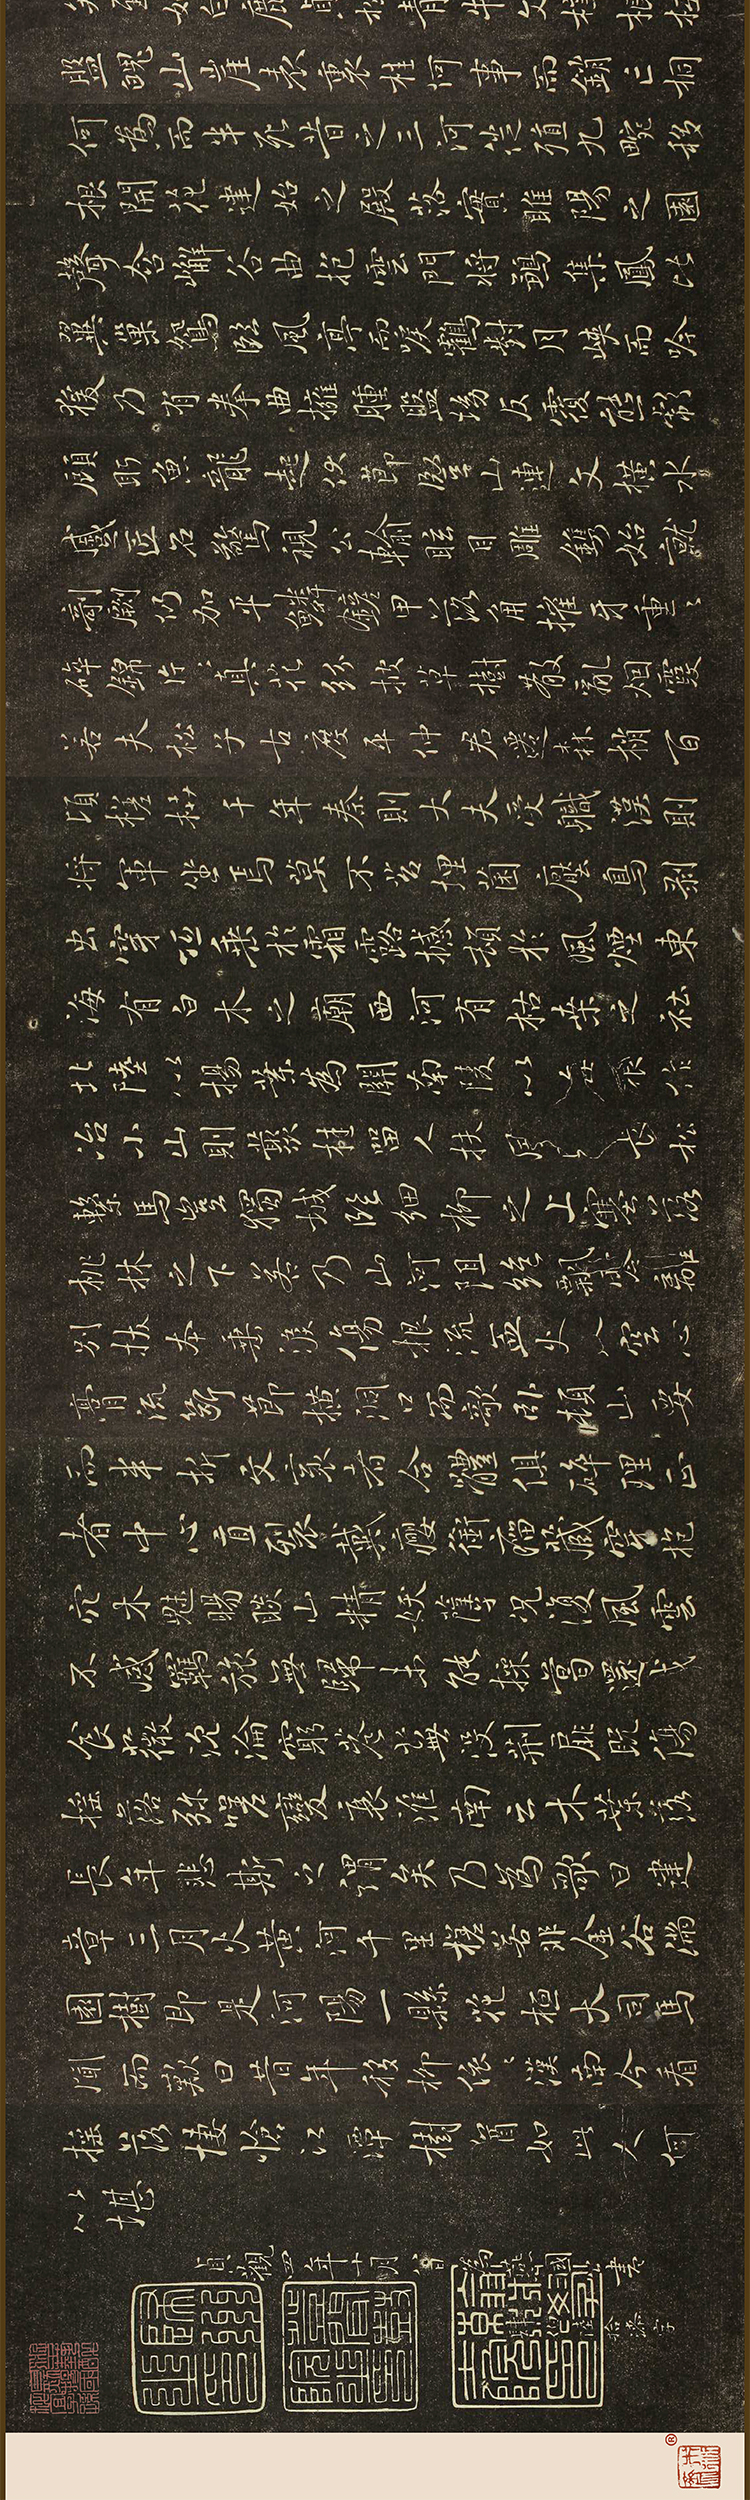 矣至如白鹿貞松青牛文梓根柢
盤魄山崖表裏桂何事而銷亡桐
何為而半死昔之三河徙殖九畹移
根開花建始之殿落實睢陽之園
聲含嶰谷曲抱雲門將鶵集鳳比
翼巢鴛臨風亭而唳鶴對月峽而吟
猨乃有拳曲擁腫盤坳反覆熊彪
顧眄魚龍起伏節竪山連文橫水
蹙匠石驚視公輸眩目雕鐫始就
剞劂仍加平鱗鏟甲落角摧牙重〻
碎錦片〻真花紛披草樹散亂烟霞
若夫松子古度平仲君遷森梢百
頃槎枿千年秦則大夫受職漢則
將軍坐焉莫不苔埋菌壓鳥剥
虫穿或垂於霜露撼頓於風煙東
海有白木之廟西河有枯桑之社
北陸以楊葉為關南陵以梅根作
冶小山則叢桂留人扶風長松
繫馬豈獨城臨細柳之上塞落
桃林之下若乃山河阻絕飄零離
別拔本垂淚傷根流血火入空心
膏流斷節橫洞口而欹卧頓山要
而半折文衺者合體俱碎理正
者中心直裂戴癭銜瘤藏穿抱
穴木魅睗睒山精妖孽況復風雲
不感羈旅無歸未能採葛還成
食薇沉淪窮巷蕪沒荊扉既傷
搖落弥嗟變衰淮南云木葉落
長年悲斯之謂矣乃為歌曰建
章三月火黃河千里槎若非金谷滿
園樹即是河陽一縣花桓大司馬
聞而歎曰昔年移柳依〻漢南今看
搖落悽愴江潭樹猶如此人何
以堪
貞觀四年十月八日為燕國公書